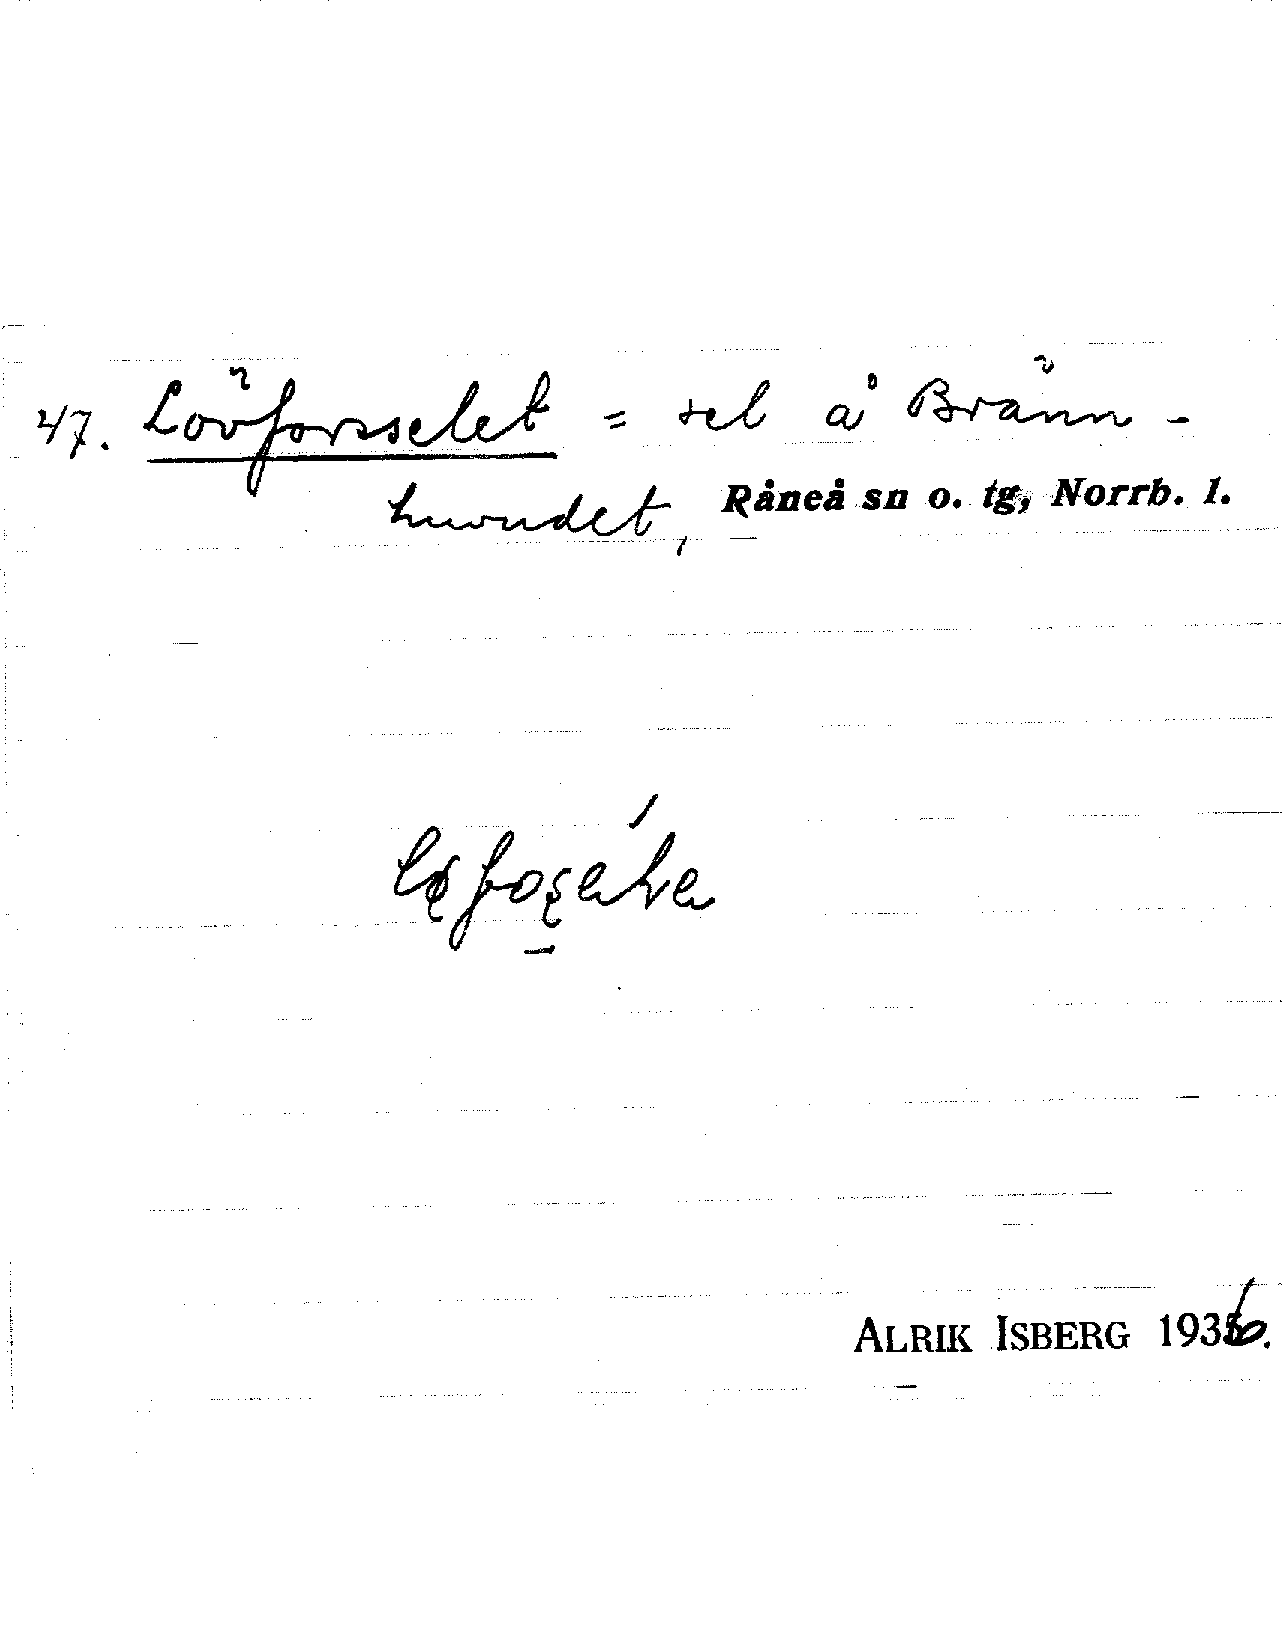 47. Lövforsselet = sel å Bränn-
huvudet, Råneå sn o. tg, Norrb. l.
ALRIK ISBERG 1936.